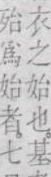 衣之始也基
始爲始者七